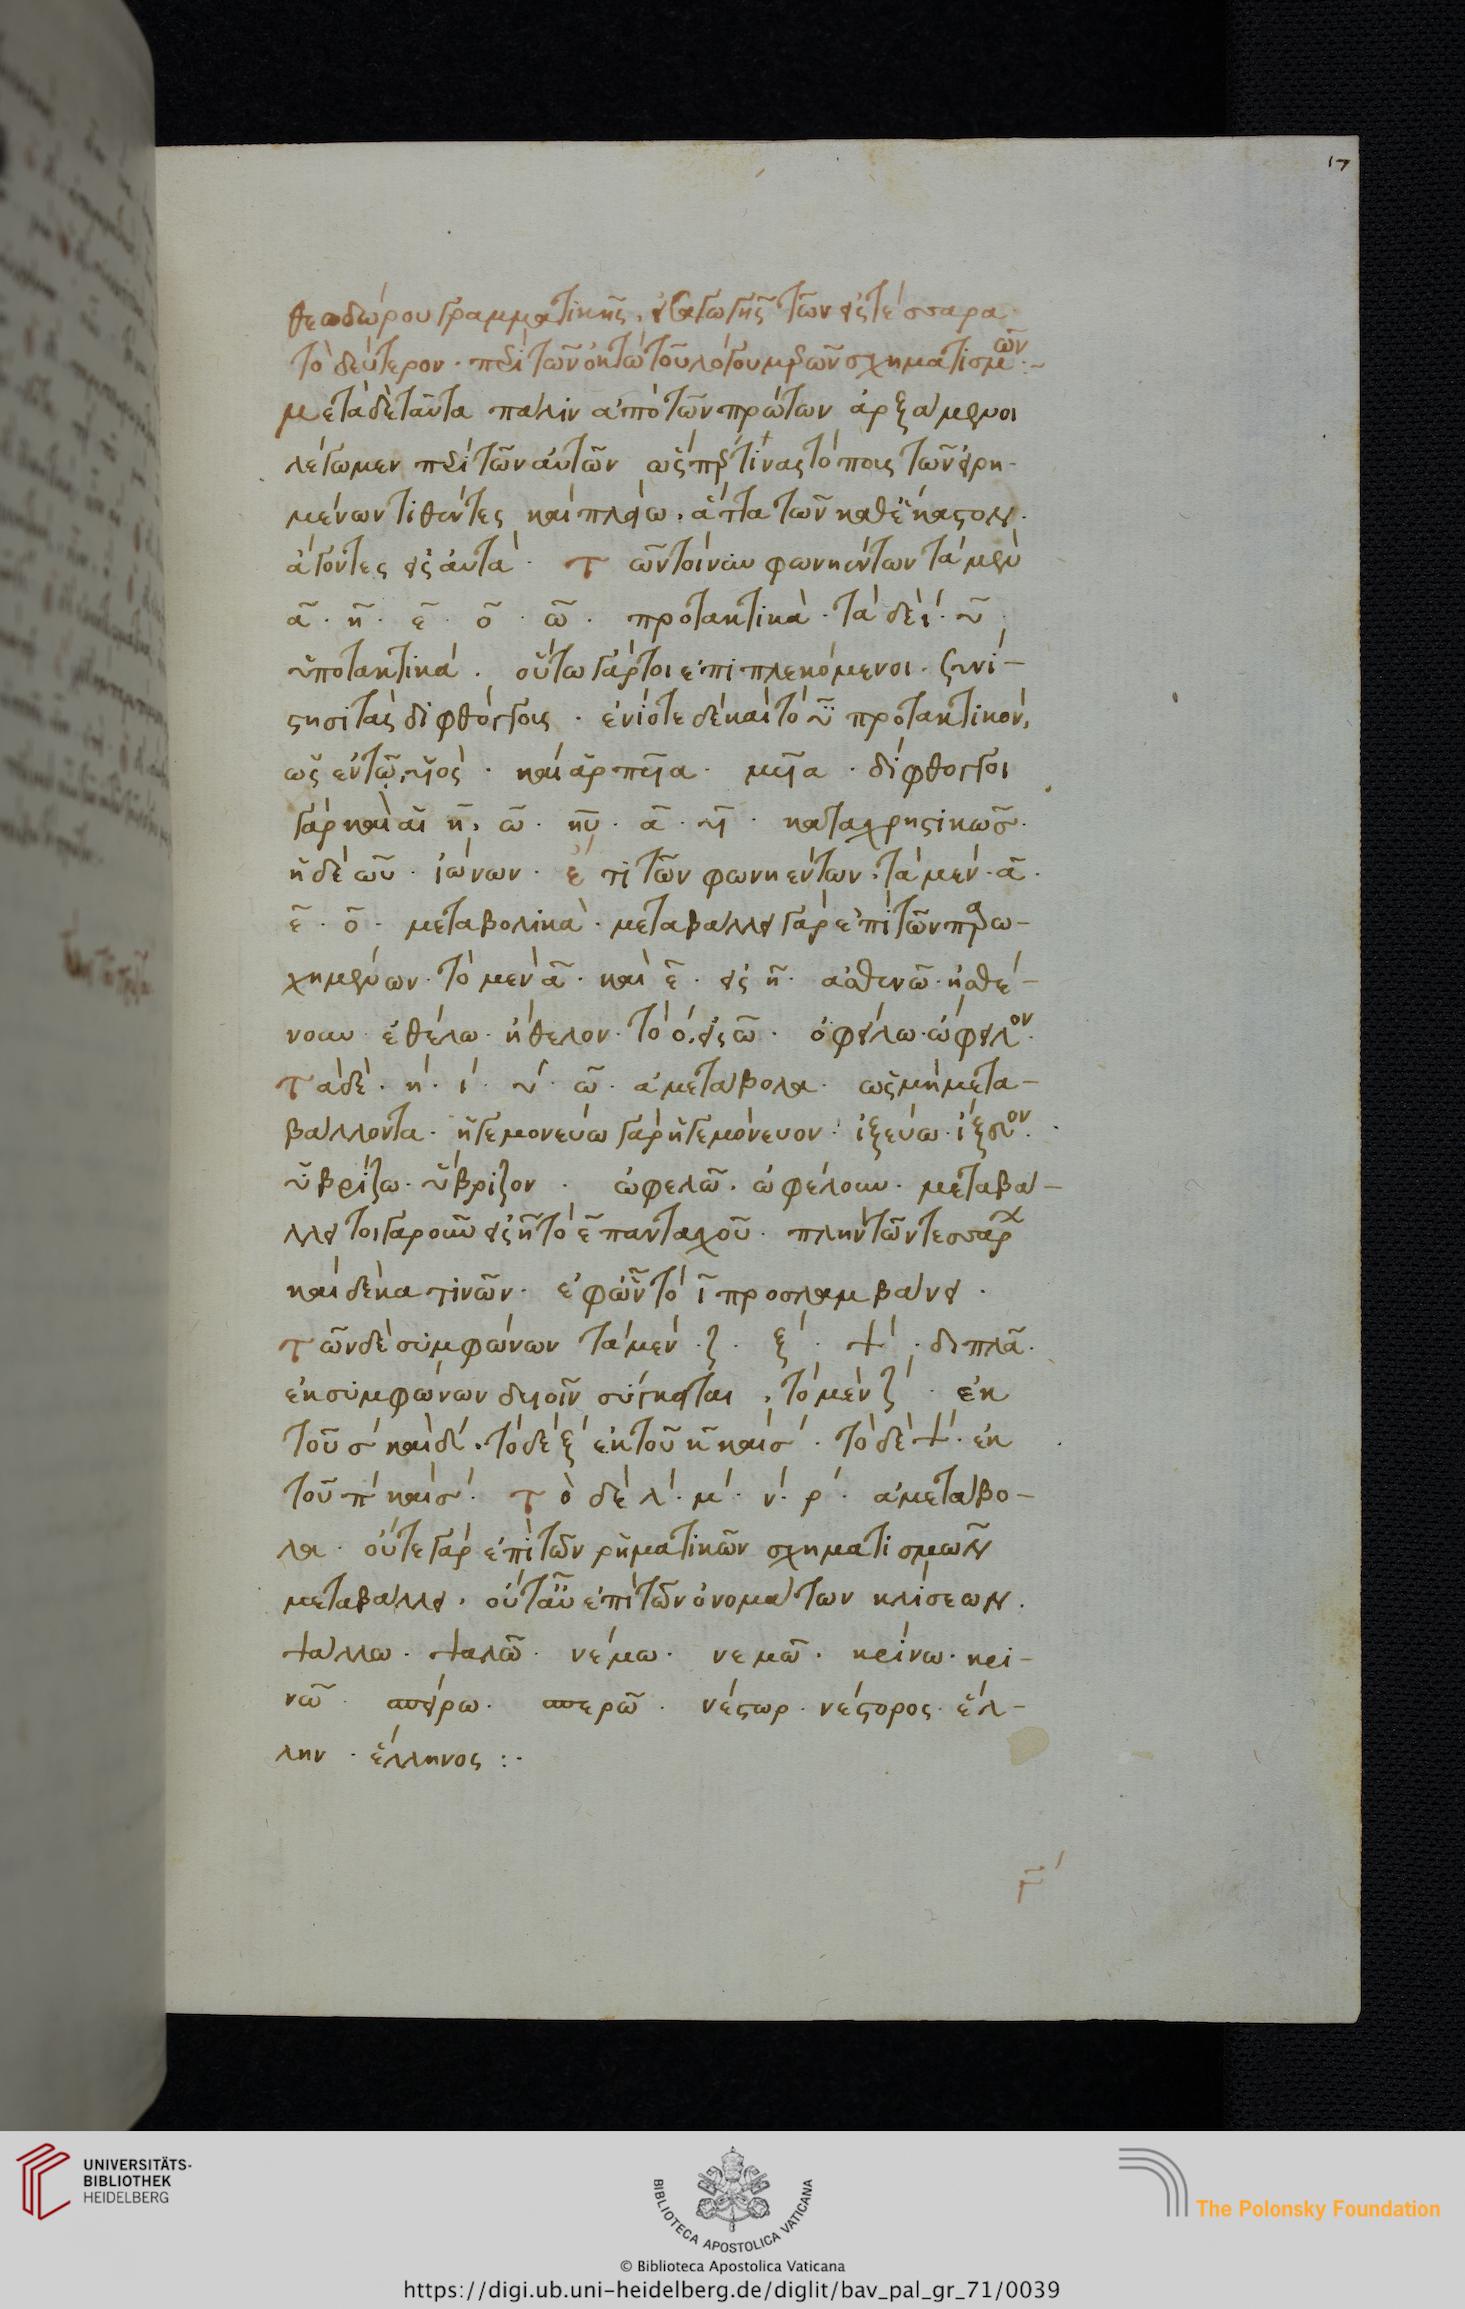 17
θεοδώρου γραμματικῆς εἰσαγωγῆς τῶν εἰς τέσσαρα
τὸ δεύτερον · περὶ τῶν ὀκτὼ τοῦ λόγου μερῶν σχηματισμῶν :~
μετὰ δὲ ταῦτα πάλιν ἀπὸ τῶν πρώτων ἀρξάμενοι
λέγωμεν περὶ τῶν αὐτῶν ὥσπερ τινὰς τόπους τῶν εἰρη-
μένων τιθέντες καὶ πλείω, ἅττα τῶν καθέκαστον
ἄγοντες εἰς αὐτά · τῶν τοίνυν φωνηέντων τὰ μὲν
α · η · ε · ο · ω · προτακτικά · τὰ δὲ ι · υ
ὑποτακτικά · οὕτω γάρ τοι ἐπιπλεκόμενοι συνί-
στησι τὰς διφθόγγους · ἐνίοτε δὲ καὶ τὸ υ προτακτικὸν,
ὡς ἐν τῷ, υἱός · καὶ ἅρπυια · μυῖα · δίφθογγοι
γὰρ καὶ αἱ ῃ, ω · ηυ · α · υι · καταχρηστικῶς ·
ἡ δὲ ωυ · ἰώνων · ἔτι τῶν φωνηέντων, τὰ μὲν · α ·
ε · ο · μεταβολικά · μεταβάλλει γὰρ ἐπὶ τῶν παρω-
χημένων · τὸ μὲν α · καὶ ε · εἰς η · ἀσθενῶ · ἠσθέ-
νουν ἐθέλω · ἤθελον · τὸ ο, εἰς ω · ὀφείλω · ὤφειλον ·
τὰ δὲ · η · ι · υ · ω · ἀμετάβολα · ὡς μὴ μετα-
βάλλοντα · ἡγεμονεύω γὰρ ἡγεμόνευον · ἰξεύω · ἴξευον ·
ὑβρίζω · ὕβριζον · ὠφελῶ · ὠφέλουν · μεταβά-
λλει τοιγαροῦν εἰς η τὸ ε πανταχοῦ · πλὴν τῶν τεσσάρων
καὶ δέκα τινῶν · ἐφ' ὧν τὸ ι προσλαμβάνει ·
τῶν δὲ συμφώνων τὰ μὲν · ζ · ξ · ψ · διπλᾶ ·
ἐκ συμφώνων δυοῖν σύγκειται, τὸ μὲν ζ · ἐκ
τοῦ σ καὶ δ · τὸ δὲ ξ ἐκ τοῦ κ καὶ σ · τὸ δὲ ψ · ἐκ
τοῦ π καὶ σ · τὸ δὲ λ · μ · ν · ρ · ἀμετάβο-
λα · οὔτε γὰρ ἐπὶ τῶν ῥηματικῶν σχηματισμῶν
μεταβάλλει, οὔτ' αὖ ἐπὶ τῶν ὀνομάτων κλίσεων ·
ψάλλω · ψαλῶ · νέμω · νεμῶ · κρίνω · κρι-
νῶ σπείρω · σπερῶ · νέστωρ · νέστορος · ἕλ-
λην · ἕλληνος :·
Γ
UNIVERSITÄTS-
BIBLIOTHEK
HEIDELBERG
BIBLIOTECA APOSTOLICA VATICANA
The Polonsky Foundation
© Biblioteca Apostolica Vaticana
https://digi.ub.uni-heidelberg.de/diglit/bav_pal_gr_71/0039